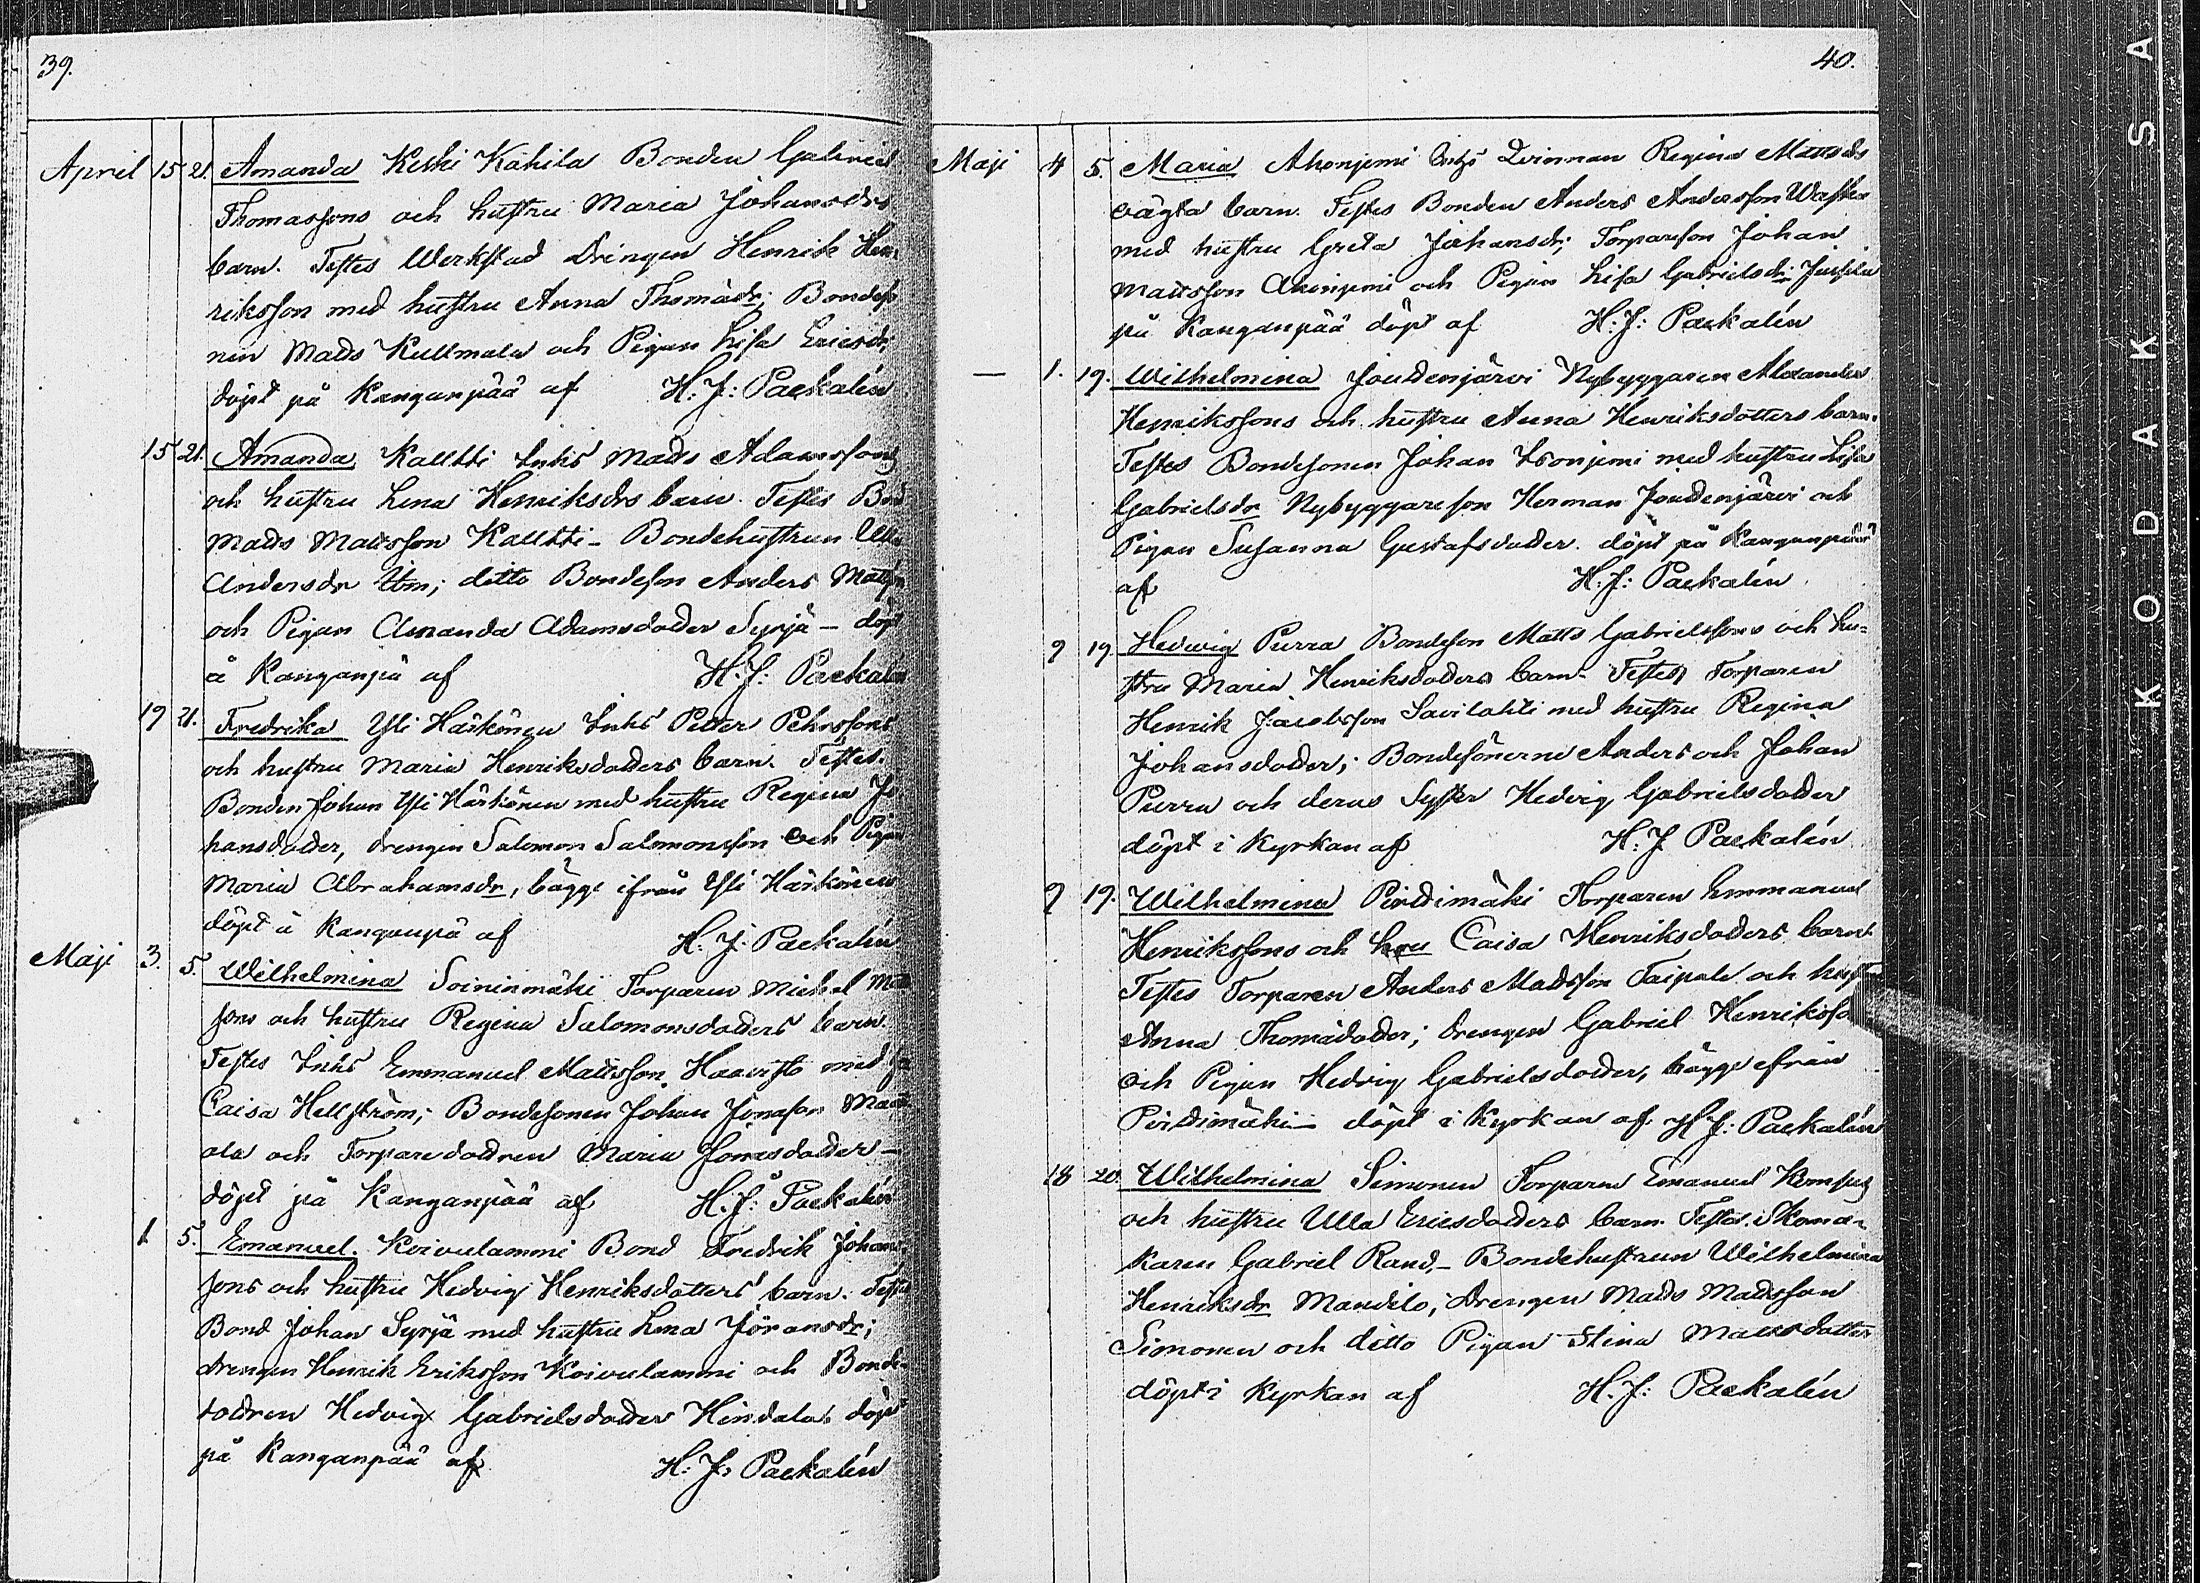 39.
April 15 21. Amanda Keski Kahila Bonden Gabriel
Thomassons och hustru Maria Johansdrs
barn. Testes Werkstad Drengen Henrik Hen-
riksson med hustru Anna Thomädr; Bondeso
nen Matts Kullmala och Pigan Lisa Ericsdr
döpt på Kanganpää af H: J: Packalén
15 21. Amanda Kalltti Inhs Matts Adamssons
och hustru Lena Henriksdrs barn. Testes Bond
Matts Mattsson Kalltti – Bondehustrun Ulla
Andersdr ibm; ditto Bondeson Anders Matts
och Pigan Amanda Adamsdotter Syrjä – döpt
å Kanganpä af H. J: Packalén
19 21. Fredrika Yli Härkönen Inhs Petter Pehrssons
och hustru Maria Henriksdotters barn. Testes.
Bonden Johan Yli Härkönen med hustru Regina Jo
hansdotter, drengen Salomon Salomonsson och Pigan
Maria Abrahamsdr, bägge ifrån Yli Härkönen
döpt å Kanganpä af H. J. Packalén
Maji 3. 5. Wilhelmina Soininmäki Torparen Michel Matts
sons och hustru Regina Salomonsdotters barn.
Testes Inhs Emmanuel Mattsson Haavisto med
Caisa Hellström; Bondesonen Johan Jonasson
ala och Torparedottren Maria Jonasdotter –
döpt på Kanganpää af H. J: Packalén
1 5. Emanuel. Koivulammi Bond Fredrik Johans
sons och hustru Hedvig Henriksdotters barn. Testes
Bond Johan Syrjä med hustru Lena Jöransdr;
drengen Henrik Eriksson Koivulammi och Bonde-
dottren Hedvig Gabrielsdotter Hindala döpt
på Kanganpää af H: J: Packalén
40.
Maji 4 5. Maria Ahonjemi Inhs Qvinnan Regina Mattsdrs
oägta barn. Testes Bonden Anders Andersson
med hustru Greta Johansdr; Torpareson Johan
Mattsson och Pigan Lisa Gabrielsdr Jussila
på Kanganpää döpt af H: J: Packalén
— 1. 19. Wilhelmina Joudenjärvi Nybyggaren Alexander
Henrikssons och hustru Anna Henriksdotters barn.
Testes Bondesonen Johan Isonjemi med hustru Lisa
Gabrielsdr Nybyggareson Herman Joudenjärvi och
Pigan Susanna Gustafsdotter. döpt på Kanganpää
af H. J: Packalén
9 19. Hedwig Purra Bondeson Matts Gabrielssons och hu-
stru Maria Henriksdotters barn. Testes Torparen
Henrik Jacobsson Savilahti med hustru Regina
Johansdotter; Bondesönerne Anders och Johan
Purra och deras Syster Hedvig Gabrielsdotter
döpt i Kyrkan af H. J Packalén
9 19. Wilhelmina Pirttimäki Torparen Emmanuel
Henrikssons och hru Caisa Henriksdotters barn.
Testes Torparen Anders Mattsson Taipale och hustru
Anna Thomädotter; drengen Gabriel Henriksso
och Pigan Hedvig Gabrielsdotter, bägge ifrån
Pirttimäki – döpt i Kyrkan af H J: Packalén
18 20. Wilhelmina Simonen Torparen Emanuel
och hustru Ulla Ericsdotters barn. Testes. Skoma-
karen Gabriel Rand, – Bondehustrun Wilhelmina
Henriksdr Mandelo; drengen Matts Mattsson
Simonen och ditto Pigan Stina Mattsdotter
döpt i Kyrkan af H. J: Packalén
KODAK SA